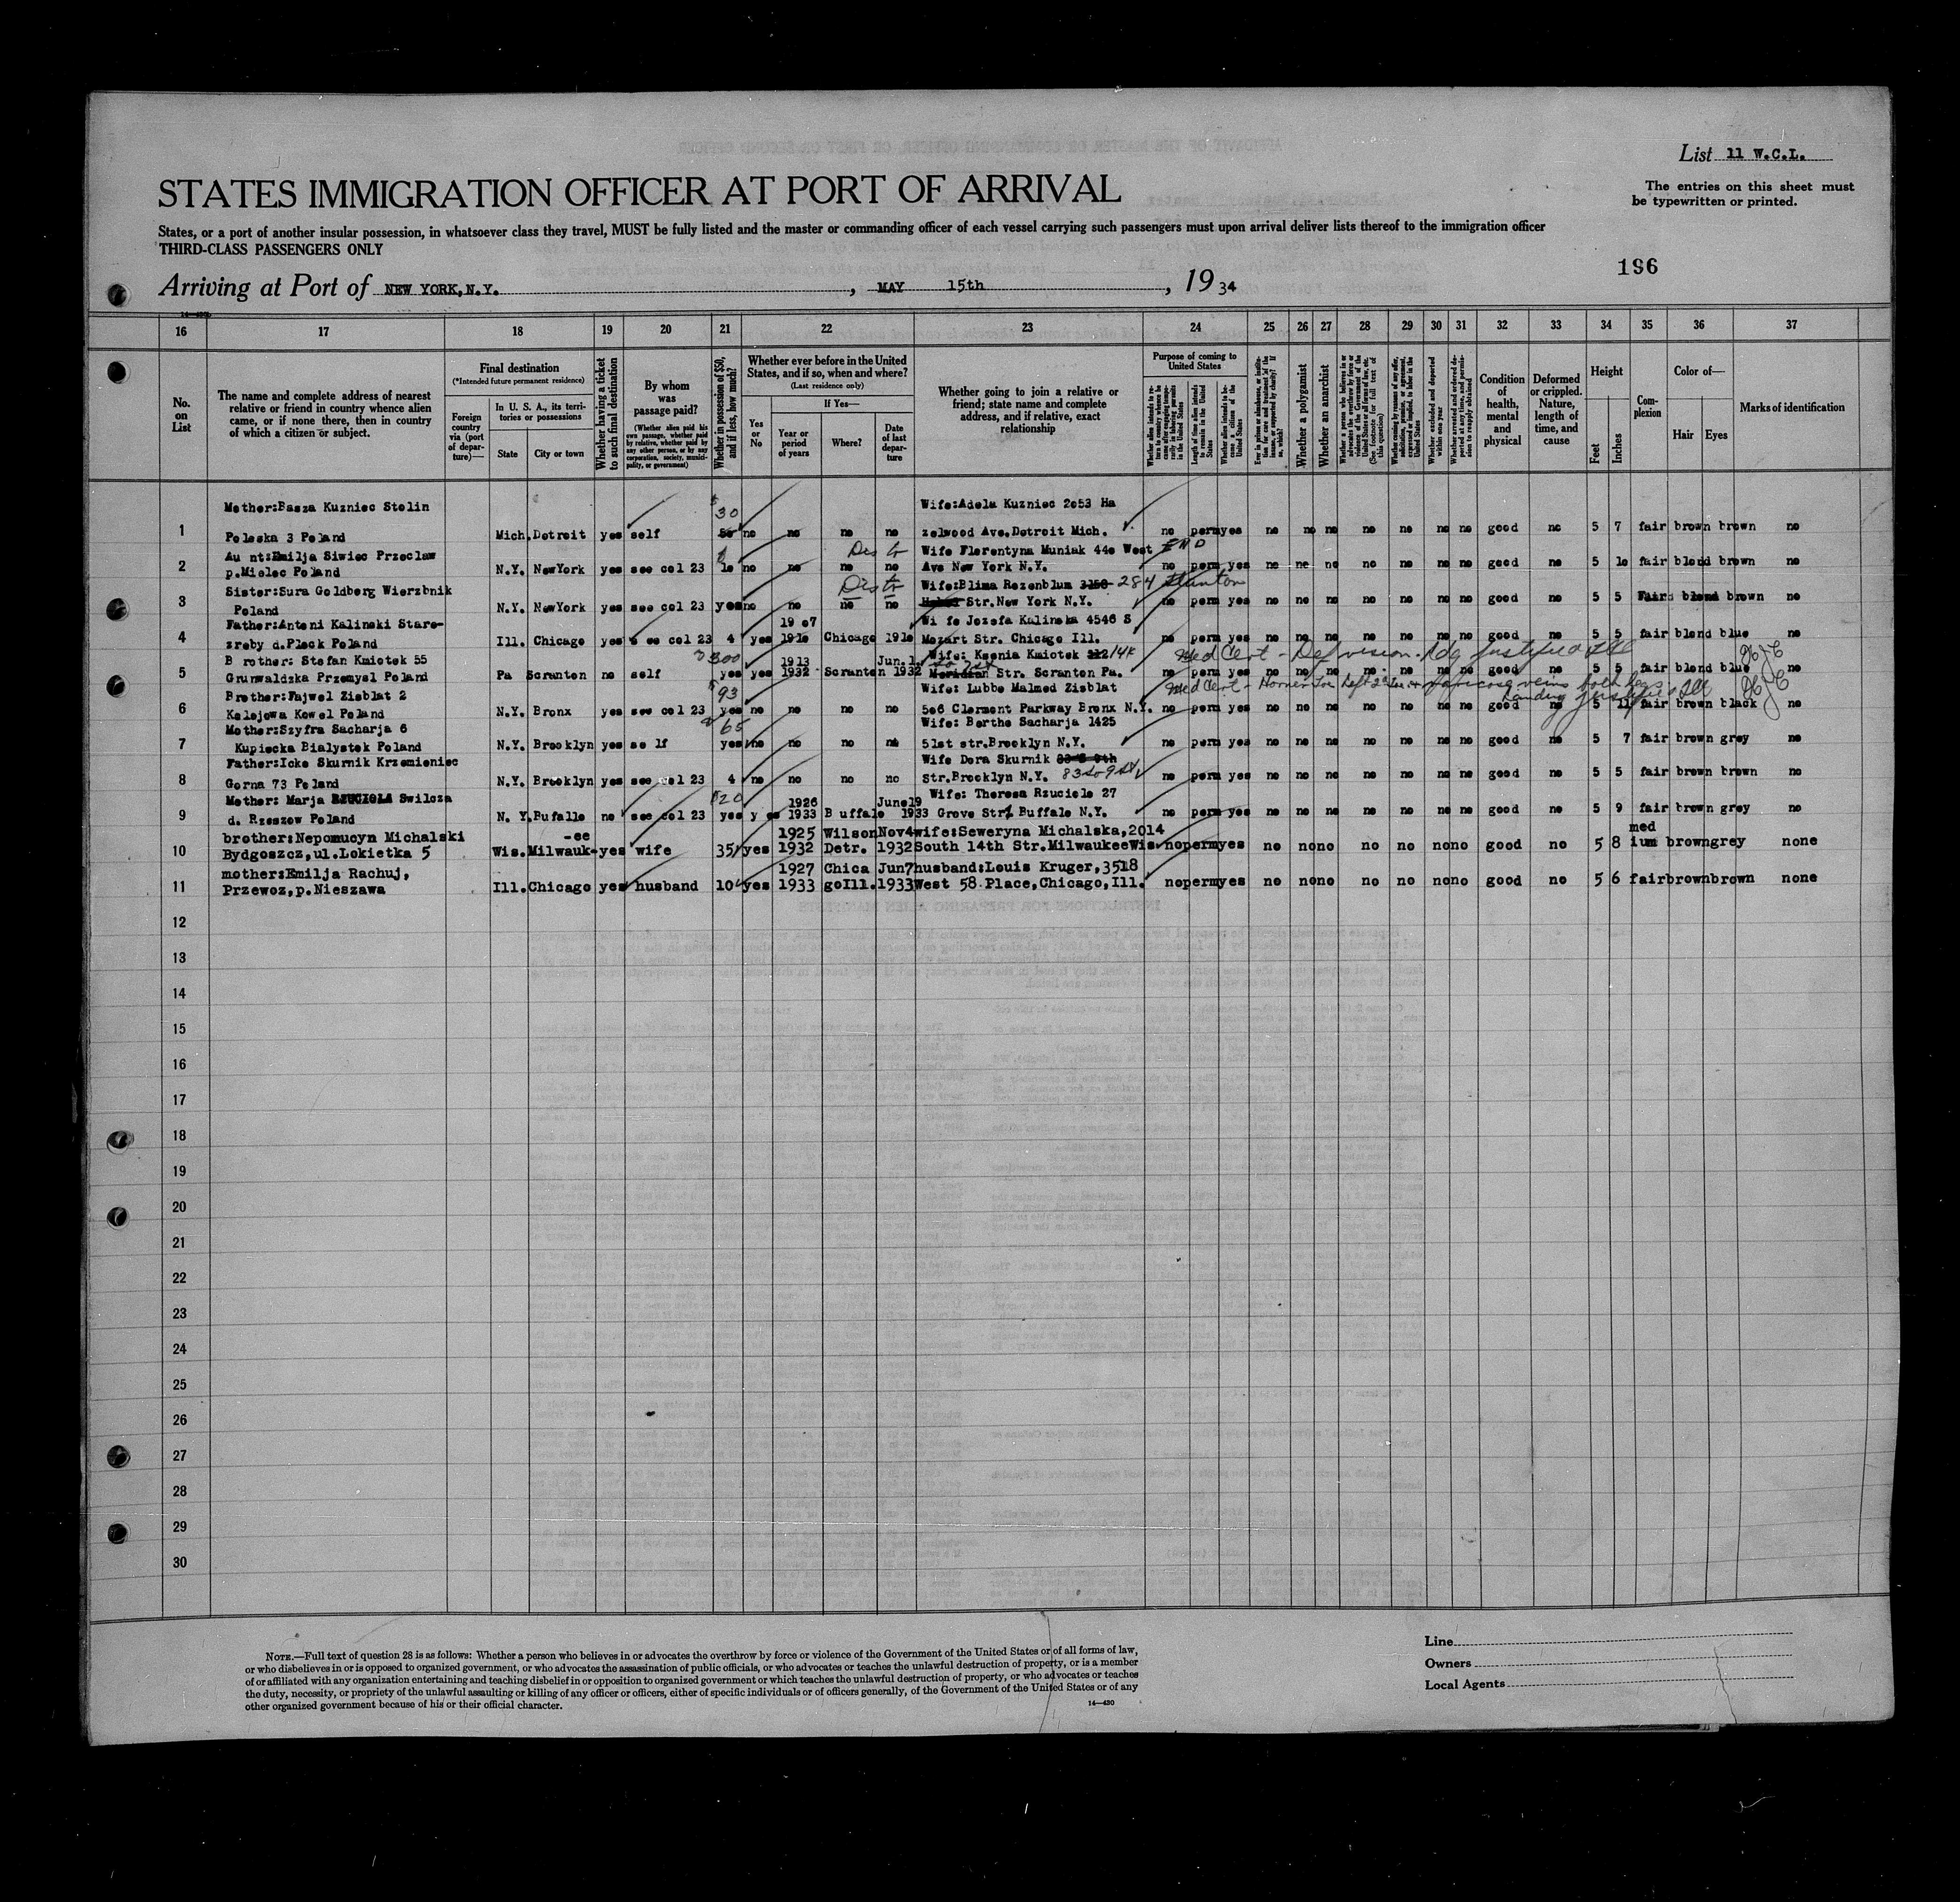 List 11 W.C.L.
STATES IMMIGRATION OFFICER AT PORT OF ARRIVAL
The entries on this sheet must
be typewritten or printed.
States, or a port of another insular possession, in whatsoever class they travel, MUST be fully listed and the master or commanding officer of each vessel carrying such passengers must upon arrival deliver lists thereof to the immigration officer
THIRD-CLASS PASSENGERS ONLY
196
Arriving at Port of NEW YORK,N.Y. , MAY 15th , 19 34
16 17 18 19 20 21 22 23 24 25 26 27 28 29 30 31 32 33 34 35 36 37
No. on List
The name and complete address of nearest relative or friend in country whence alien came, or if none there, then in country of which a citizen or subject.
Final destination
(*Intended future permanent residence)
Foreign country via (port of departure)—
In U. S. A., its territories or possessions
State City or town
Whether having a ticket to such final destination
By whom was passage paid?
(Whether alien paid his own passage, whether paid by relative, whether paid by any other person, or by any corporation, society, municipality, or government)
Whether in possession of $50, and if less, how much?
Whether ever before in the United States, and if so, when and where?
(Last residence only)
Yes or No
If Yes—
Year or period of years
Where?
Date of last departure
Whether going to join a relative or friend; state name and complete address, and if relative, exact relationship
Purpose of coming to United States
Length of time alien intends to remain in the United States
Whether alien intends to become a citizen of the United States
Whether a polygamist
Whether an anarchist
Condition of health, mental and physical
Deformed or crippled. Nature, length of time, and cause
Height
Feet Inches
Complexion
Color of—
Hair Eyes
Marks of identification
Mother:Basza Kuzniec Stolin Wife:Adela Kuzniec 2o53 Ha
30
1 Poleska 3 Poland Mich.Detroit yes self no no no no zelwood Ave.Detroit Mich. no perm yes no no no no no no no good no 5 7 fair brown brown no
Au nt:Emilja Siwiec Przeclaw Wife Florentyna Muniak 44o West
2 p.Mielec Poland N.Y. NewYork yes see col 23 1o no no no no Ave New York N.Y. no perm yes no no no no no no no good no 5 1o fair blond brown no
Sister:Sura Goldberg Wierzbnik Wife:Blima Rozenblum 3150 284 Stanton
3 Poland N.Y. NewYork yes see col 23 yes no no no no Str.New York N.Y. no perm yes no no no no no no no good no 5 5 Fair blond brown no
Father:Antoni Kalinski Stare- 19 o7 Wi fe Jozefa Kalinska 4546 S
4 zreby d.Plock Poland Ill. Chicago yes s ee col 23 4 yes 191o Chicago 191o Mozart Str. Chicago Ill. no perm yes no no no no no no no good no 5 5 fair blond blue no
B rother: Stefan Kmiotek 55 300 1913 Jun.1. Wife: Ksenia Kmiotek 312 Med Cert - Def vision. Ldg justified
5 Grunwaldzka Przemysl Poland Pa Scranton no self yes yes 1932 Scranton 1932 Meridian Str. Scranton Pa. no perm yes no no no no no no no good no 5 5 fair blond blue no
Brother:Fajwel Zisblat 2 93 Wife: Lubbe Malmed Zisblat Med Cert - Hammer Toe Left 2d toe + varicose veins both legs. Landing justified
6 Kolejowa Kowel Poland N.Y. Bronx yes see col 23 yes no no no no 5o6 Clermont Parkway Bronx N.Y. no perm yes no no no no no no no good no 5 11 fair brown black no
Mother:Szyfra Sacharja 6 65 Wife: Berthe Sacharja 1425
7 Kupiecka Bialystok Poland N.Y. Brooklyn yes se lf yes no no no no 51st str.Brooklyn N.Y. no perm yes no no no no no no no good no 5 7 fair brown grey no
Father:Icko Skurnik Krzemieniec Wife Dora Skurnik 83 S 9th
8 Gorna 73 Poland N.Y. Brooklyn yes see col 23 4 no no no no Str.Brooklyn N.Y. 83 So 9 St no perm yes no no no no no no no good no 5 5 fair brown brown no
Mother: Marja RZUCIOLA Swilcza 120 1926 June19 Wife: Theresa Rzuciolo 27
9 d. Rzeszow Poland N. Y.Bufallo no see col 23 yes y es 1933 B uffalo 1933 Grove Str. Buffalo N.Y. no perm yes no no no no no no no good no 5 9 fair brown grey no
brother:Nepomucyn Michalski -ee 1925 Wilson Nov4 wife:Seweryna Michalska,2014 med
10 Bydgoszcz,ul.Lokietka 5 Wis.Milwauk- yes wife 35 yes 1932 Detr. 1932 South 14th Str.MilwaukeeWis no perm yes no no no no no no no good no 5 8 ium brown grey none
mother:Emilja Rachuj, 1927 Chica Jun7 husband:Louis Kruger,3518
11 Przewoz,p.Nieszawa Ill.Chicago yes husband 10 yes 1933 goIll. 1933 West 58 Place,Chicago,Ill. no perm yes no no no no no no no good no 5 6 fair brown brown none
12
13
14
15
16
17
18
19
20
21
22
23
24
25
26
27
28
29
30
NOTE.—Full text of question 28 is as follows: Whether a person who believes in or advocates the overthrow by force or violence of the Government of the United States or of all forms of law,
or who disbelieves in or is opposed to organized government, or who advocates the assassination of public officials, or who advocates or teaches the unlawful destruction of property, or is a member
of or affiliated with any organization entertaining and teaching disbelief in or opposition to organized government or which teaches the unlawful destruction of property, or who advocates or teaches
the duty, necessity, or propriety of the unlawful assaulting or killing of any officer or officers, either of specific individuals or of officers generally, of the Government of the United States or of any
other organized government because of his or their official character.
14—430
Line
Owners
Local Agents